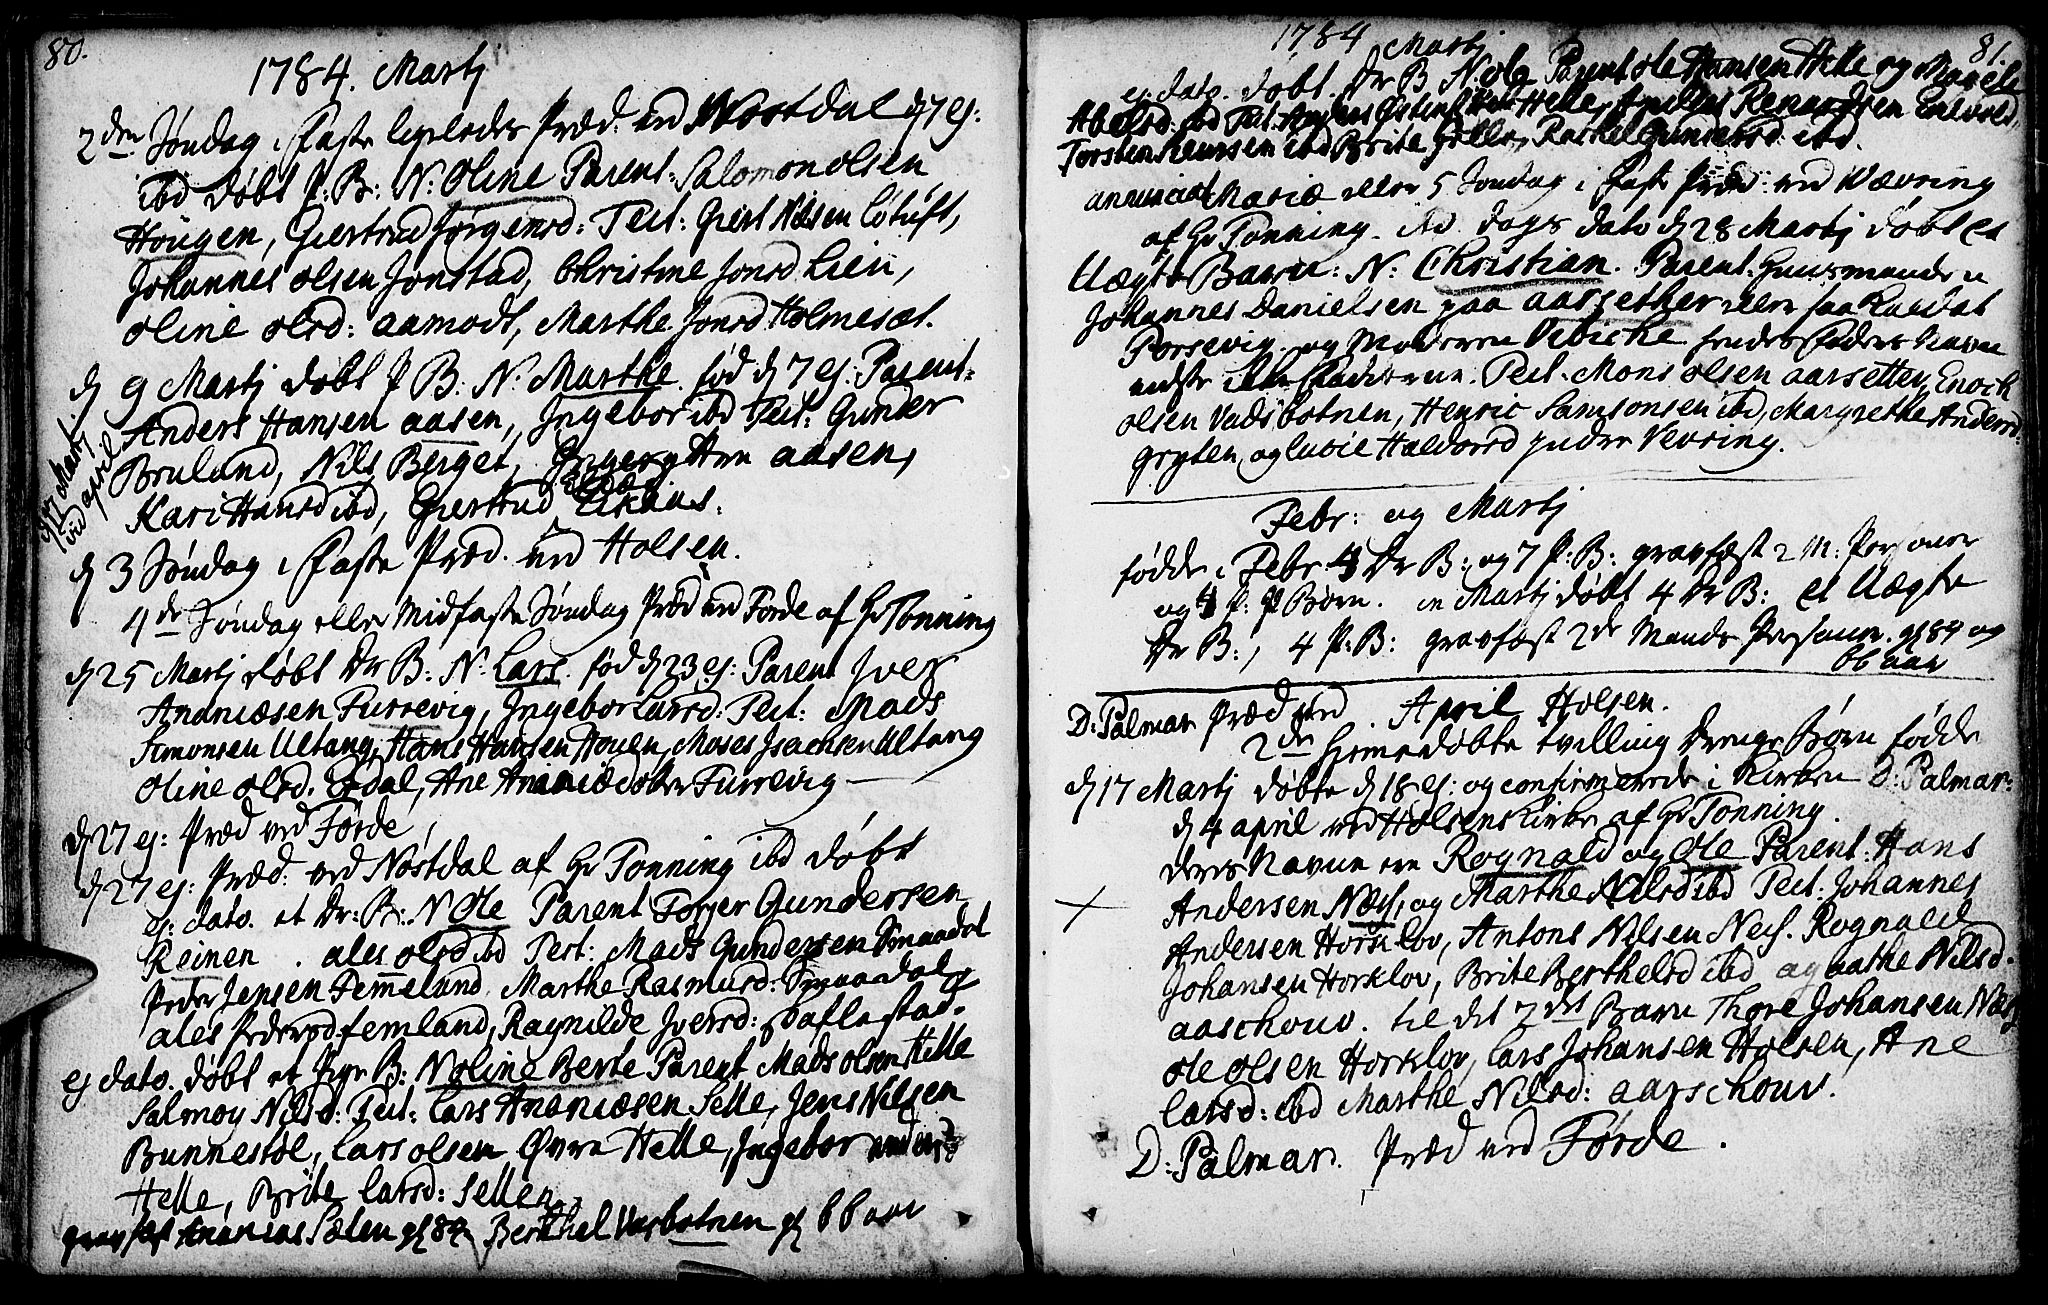 80.
1784. Martj
2den Søndag i Faste ligeledes Præd. ved Nostdal d 7 ej:
ibd døbt P: B: N: Oline Parent: Salomon olsen
Hougen, Giertrud Jørgensd: Test: Giert Nilsen
Johannes olsen Jonstad, Christine Jonsd Lien,
oline olsd: aamodt, Marthe Jonsd Holmeset.
d 9 Martj døbt P B: N: Marthe. fød d 7 ej: Parent:
Anders Hansen aasen, Ingebor ibd Test: Gunder
Bruland, Nils Berget, Ane aasen,
Kari Hansd ibd, Giertrud
d 3 Søndag i Faste Præd. ved Holsen.
4de Søndag eller Midfaste Søndag Præd ved Førde af Hr Tonning
d 25 Martj døbt Dr B: N: Lars. fød d 23 ej: Parent Iver
Ananiæsen Furrevig, Ingebor Larsd: Test: Mads
Simonsen Ultang, Hans Hansen Houen, Moses Isachsen Ultang
Oline olsd. Erdal, Ane Furrevig
d 27 ej: Præd ved Førde
d 27 ej: Præd: ved Nostdal af Hr Tonning ibd døbt
ej: dato. et Dr: B: N Ole Parent Torger Gundersen
Reinen. ales olsd ibd Test: Mads Gundersen Smaadal
Peder Jensen Femmeland. Marthe Rasmusd: Smaadal
ales Pedersd femland, Ragnilde Iversd:
ej dato. døbt et Pige B: N oline Berte Parent Mads olsen Helle
Salmoy Nilsd: Test: Lars Ananiæsen Selle, Jens Nilsen
Bunnestøl, Lars olsen Øvre Helle, Ingebor
Helle, Brite Larsd: Sellen
gravfæst Ananias Sælen gl 84 Berthel Vasbotnen gl 66 aar
d 17 Martj
april
1784 Martj
81.
ej dato. døbt. Dr B N. Ole Parent Ole Hansen Helle og
Abelsd: ibd Test: Anders Helle,
Torsten ibd Brite Rachel Gundersd ibd.
annunciat Mariæ eller 5 Søndag i Faste Præd ved Wævring
af Hr Tonning. dags dato d 28 Martj døbt et
Uægte Barn: N: Christian. Parent: Huusmanden
Johannes Danielsen paa aarsether eller saa Kaldet
Torsevig. og Moderen Vibicke hendes Faders Navn
vidste ikke Fadderne. Test. Mons olsen aarsetter, Enoch
olsen Vadsbotnen, Henric Samsonsen ibd, Margrethe Andersd:
gryten, og Lucie Haldorsd Indre Vevring.
Febr: og Martj
fødde i Febr. 4 Dr B: og 7 P: B: gravfæst 2 M: Personer
og 4 P: P Børn. in Martj døbt 4 Dr B: et Uægte
Dr B:, 4 P: B: gravfæst 2de Mands Personer. gl 84 og
66 aar
D: Palmar Præd ved. April Holsen.
2de Hiemedøbte tvilling Drenge Børn fødde
d 17 Martj døbte d 18 ej: og confirmerede i Kirken D: Palmar:
d 4 april ved Holsens Kirke af Hr Tonning.
deres Navne ere Rognald og Ole Parent: Hans
Andersen Næss, og Marthe Nilsd ibd Test: Johannes
Andersen Horklov, Antons Nilsen Ness. Rognald
Johansen Horklov, Brite Berthelsd ibd agaathe Nilsd.
aaschouv. til det 2det Barn Thore Johansen Næss
ole olsen Horklov, Lars Johansen Holsen, Ane
Larsd: ibd Marthe Nilsd: aarschouv.
D: Palmar. Præd ved Førde.